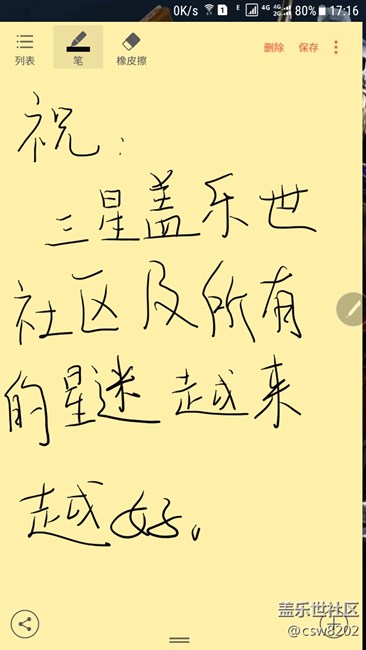 0K/s 1 E 4G 4G 2G 80% 17:16
列表 笔 橡皮擦 删除 保存
祝:
三星盖乐世
社区及所有
的星迷越来
越好。
盖乐世社区
@csw8202